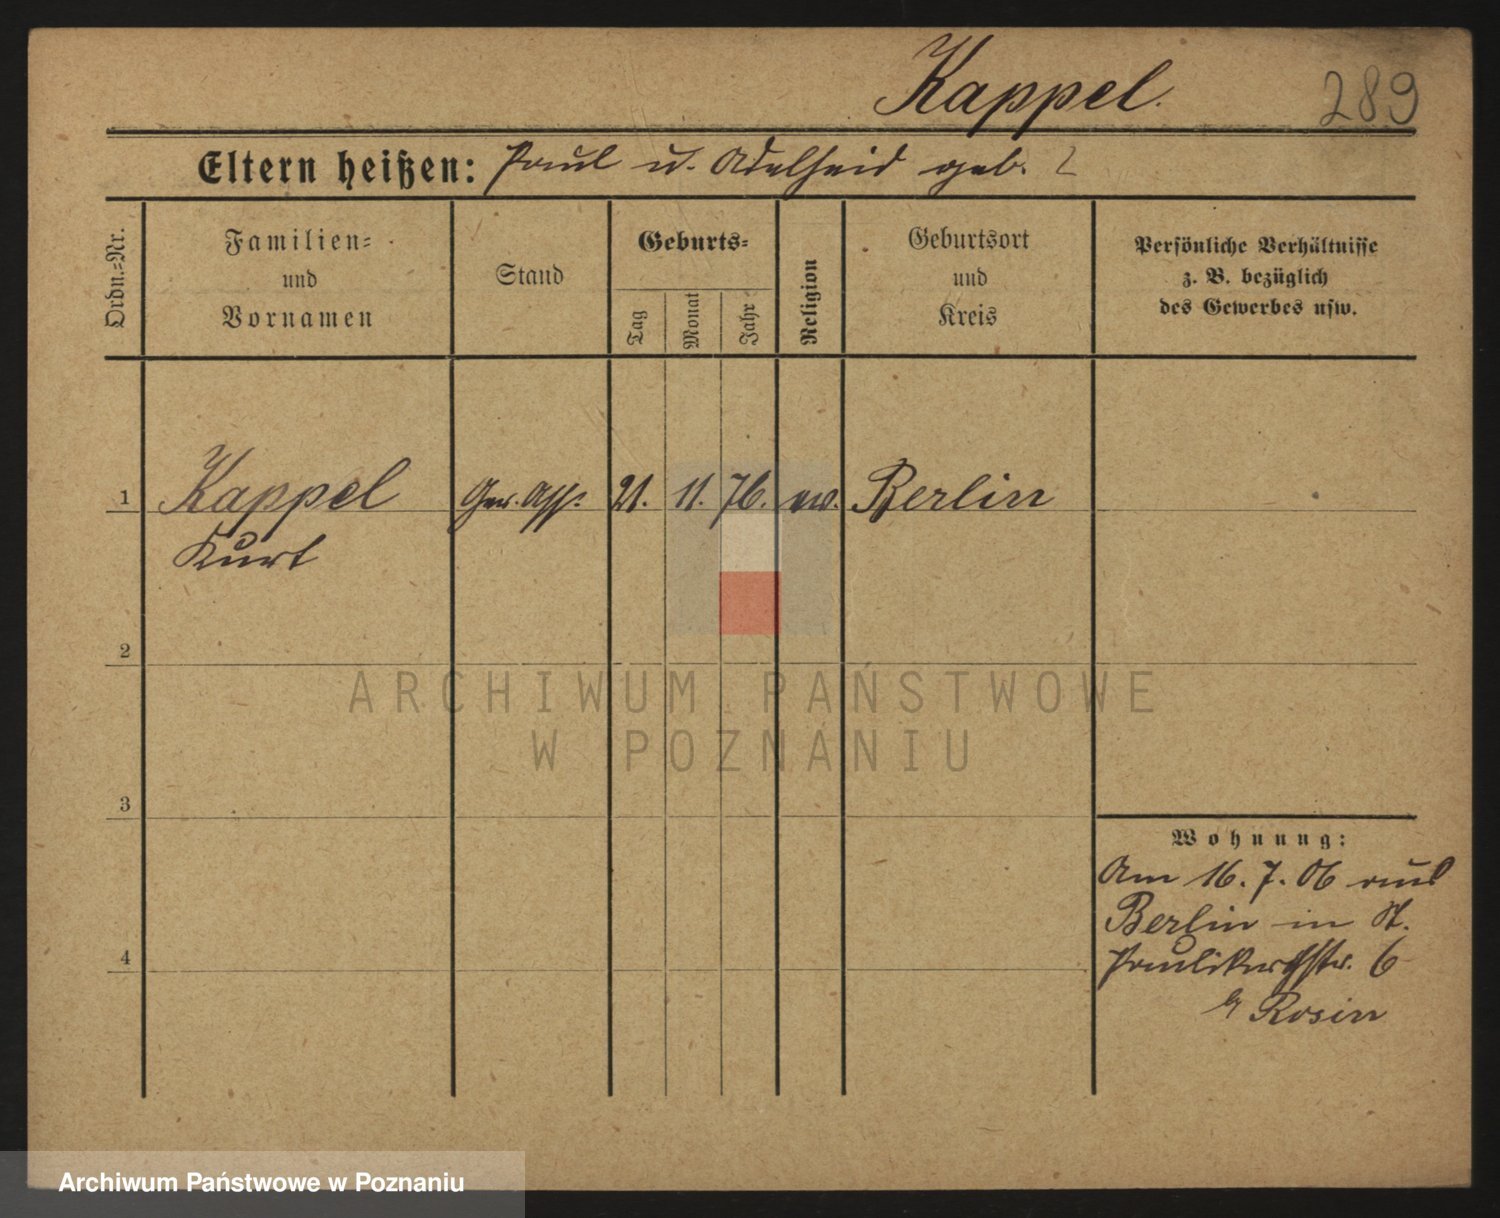 Kappel.
289
Eltern heißen: Paul u. Adelheid geb. ?
Ordn.-Nr.
Familien-
und
Vornamen
Stand
Geburts-
Tag
Monat
Jahr
Religion
Geburtsort
und
Kreis
Persönliche Verhältnisse
z. B. bezüglich
des Gewerbes usw.
1 Kappel Ger. Ass. 21. 11. 76. ev. Berlin
Kurt
2
ARCHIWUM PAŃSTWOWE
W POZNANIU
3
Wohnung:
Am 16. 7. 06 aus
Berlin in St.
Paulikirchstr. 6
4
Rosin
Archiwum Państwowe w Poznaniu